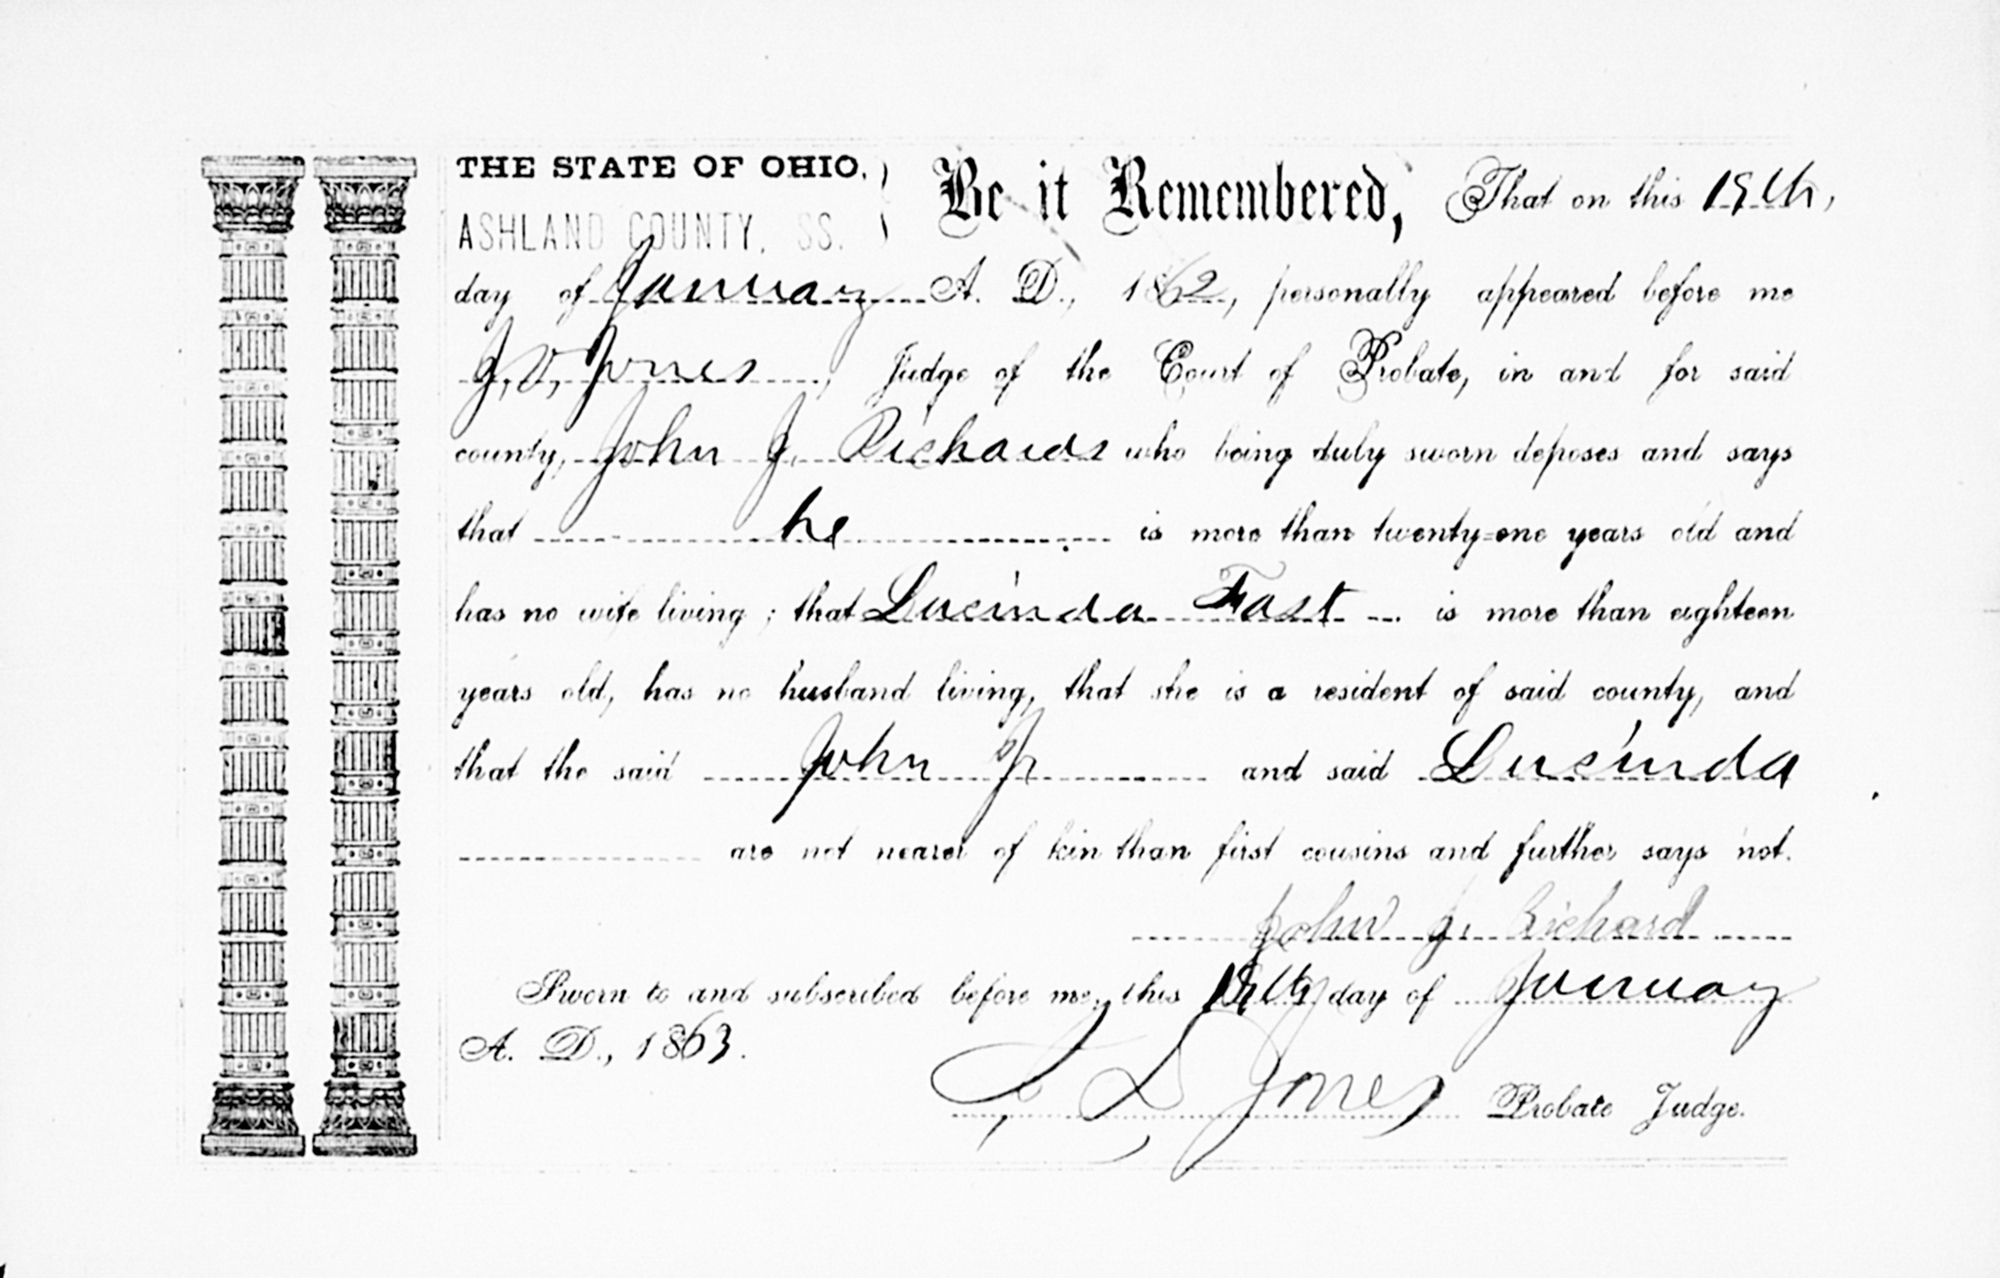 THE STATE OF OHIO, Be it Remembered, That on this 19th,
ASHLAND COUNTY, SS.
day of January A. D., 1862, personally appeared before me
J. D. Jones, Judge of the Court of Probate, in and for said
county, John J. Richards who being duly sworn deposes and says
that he is more than twenty-one years old and
has no wife living; that Lucinda Fast is more than eighteen
years old, has no husband living, that she is a resident of said county, and
that the said John J. and said Lucinda
are not nearer of kin than first cousins and further says not.
John J. Richard
Sworn to and subscribed before me, this 19th day of January
A. D., 1863.
J D Jones Probate Judge.